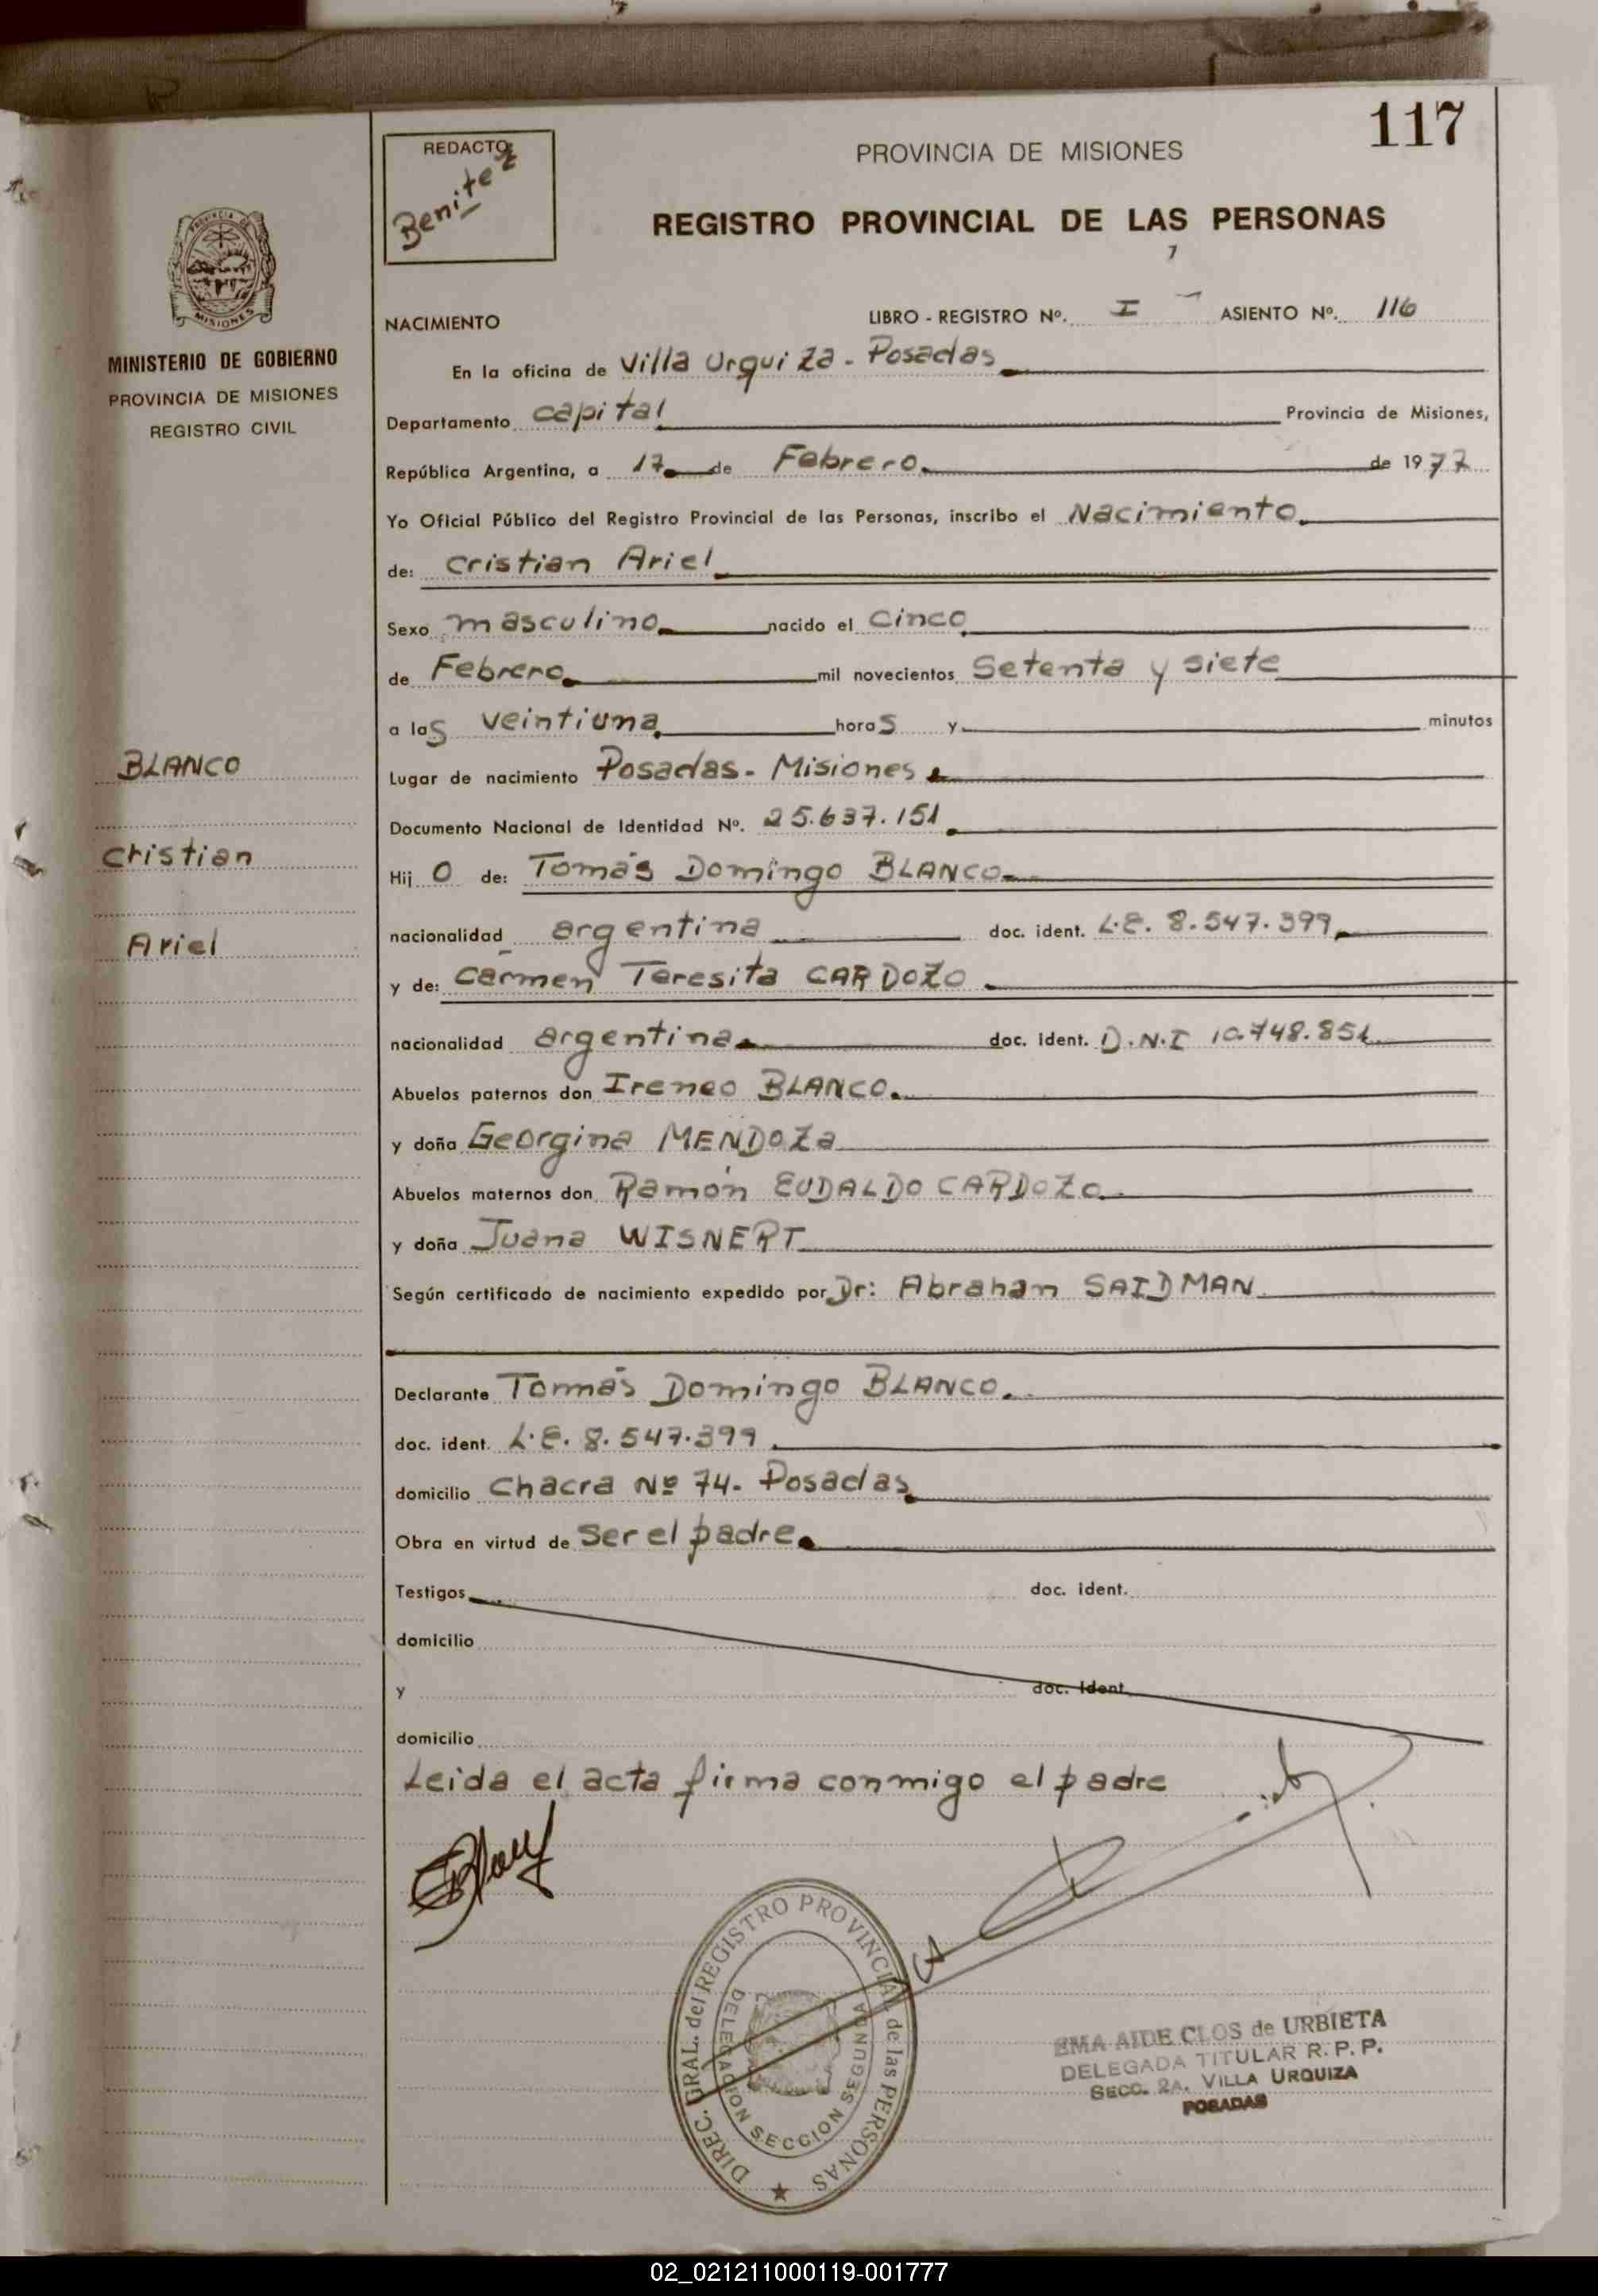 117
REDACTO
Benitez
PROVINCIA DE MISIONES
REGISTRO PROVINCIAL DE LAS PERSONAS
PROVINCIA DE
MISIONES
MINISTERIO DE GOBIERNO
PROVINCIA DE MISIONES
REGISTRO CIVIL
NACIMIENTO LIBRO - REGISTRO Nº. I ASIENTO Nº. 116
En la oficina de Villa Urquiza - Posadas
Departamento capital Provincia de Misiones,
República Argentina, a 17 de Febrero de 1977
Yo Oficial Público del Registro Provincial de las Personas, inscribo el Nacimiento
de: Cristian Ariel
Sexo masculino nacido el Cinco
de Febrero mil novecientos Setenta y siete
a las veintiuna horas y minutos
BLANCO
Lugar de nacimiento Posadas - Misiones
Documento Nacional de Identidad Nº. 25.637.151
Cristian
Hijo de: Tomás Domingo BLANCO
Ariel
nacionalidad argentina doc. ident. L.E. 8.547.399
y de: Carmen Teresita CARDOZO
nacionalidad argentina doc. ident. D.N.I 10.748.851
Abuelos paternos don Ireneo BLANCO.
y doña Georgina MENDOZa
Abuelos maternos don Ramón EUDALDO CARDOZo
y doña Juana WISNERT
Según certificado de nacimiento expedido por Dr: Abraham SAIDMAN
Declarante Tomás Domingo BLANCO.
doc. ident. L.E. 8.547.399
domicilio Chacra Nº 74 - Posadas
Obra en virtud de Ser el padre
Testigos doc. ident.
domicilio
y doc. ident.
domicilio
Leida el acta firma conmigo el padre
DIREC. GRAL. del REGISTRO PROVINCIAL de las PERSONAS
DELEGACION SECCION SEGUNDA
EMA AIDE CLOS de URBIETA
DELEGADA TITULAR R. P. P.
SECC. 2A. VILLA URQUIZA
POSADAS
02_021211000119-001777